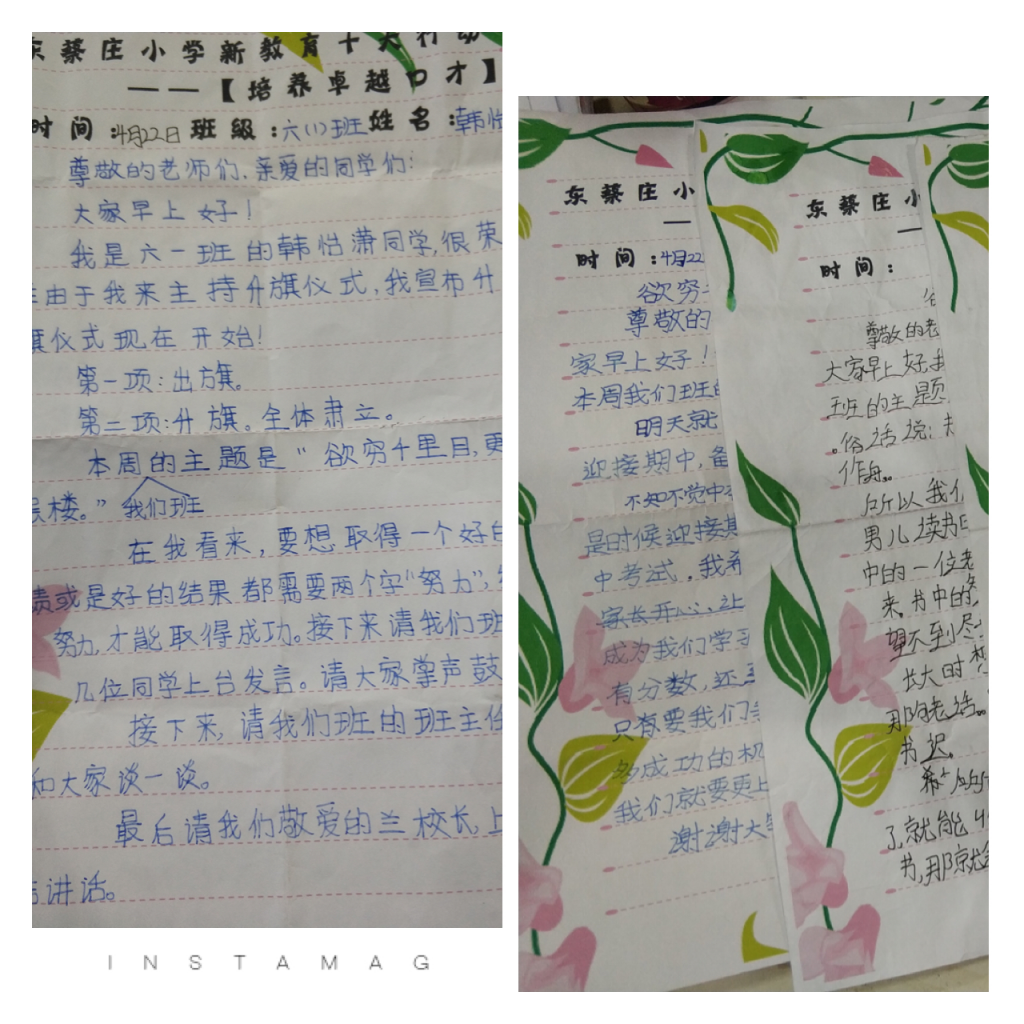 东蔡庄小学新教育十大行动
——【培养卓越口才】
时间:4月22日 班级:六(1)班 姓名:韩怡
尊敬的老师们,亲爱的同学们:
大家早上好!
我是六一班的韩怡潇同学,很荣
由于我来主持升旗仪式,我宣布升
旗仪式现在开始!
第一项:出旗。
第二项:升旗。全体肃立。
本周的主题是“欲穷千里目,更
层楼。”我们班
在我看来,要想取得一个好的
绩或是好的结果都需要两个字“努力”,
努力,才能取得成功。接下来请我们班
几位同学上台发言。请大家掌声鼓
接下来,请我们班的班主任
和大家谈一谈。
最后请我们敬爱的兰校长,上
讲话。
INSTAMAG
东蔡庄小
—
时间:4月22
欲穷
尊敬的
家早上好!
本周我们班的
明天就
迎接期中,备
不知不觉中
是时候迎接期
中考试,我希
家长开心,让
成为我们学习
有分数,还
只有要我们
多成功的机
我们就要更上
谢谢大
东蔡庄小
—
时间:
尊敬的老
大家早上好
班的主题
俗话说:
作舟。
所以我们
男儿读书
中的一位老
来。书中的
望不到尽
长大时
那的老话。
书迟。
希
了,就能
书,那就